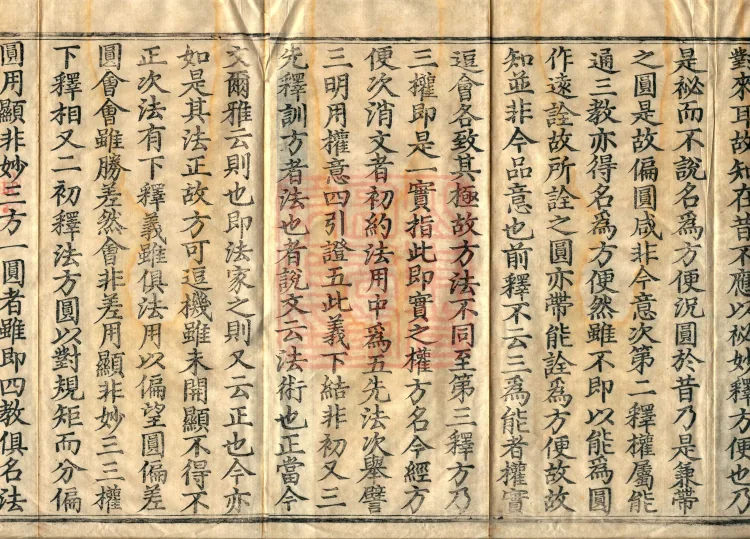 對來耳故知在昔不應以秘妙釋方便也乃
是祕而不說名爲方便況圓於昔乃是兼帶
之圓是故偏圓咸非今意次第二釋權屬能
通三教亦得名爲方便然雖不即以能爲圓
作遠詮故所詮之圓亦帶能詮爲方便故故
知並非今品意也前釋不云三爲能者權實
逗會各致其極故方法不同至第三釋方乃
三權即是一實指此即實之權方名今經方
便次消文者初約法用中爲五先法次舉譬
三明用權意四引證五此義下結非初又三
先釋訓方者法也者說文云法術也正當今
文爾雅云則也即法家之則又云正也今亦
如是其法正故方可逗機雖未開顯不得不
正次法有下釋義雖俱法用以偏望圓偏差
圓會會雖勝差然會非差用顯非妙三三權
下釋相又二初釋法方圓以對規矩而分偏
圓用顯非妙三方一圓者雖即四教俱名法